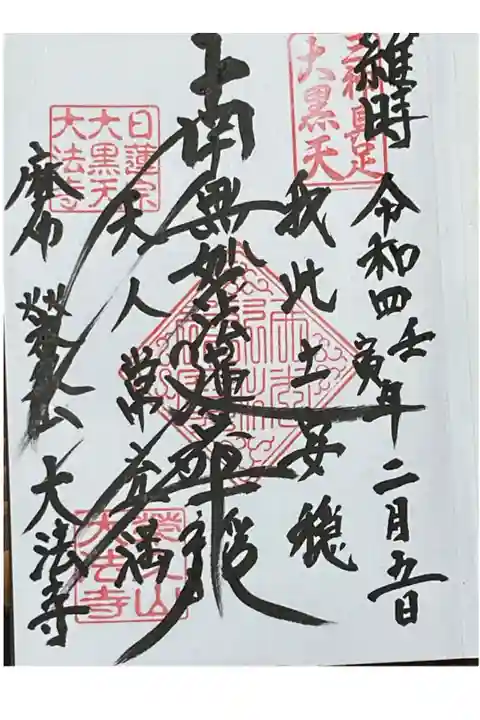 維時 令和四壬寅年 二月五日
大黒天
我此土安穏
南無妙法蓮華経
天人常充満
日蓮宗
大黒天
大法寺
麻布 大法寺
大法寺